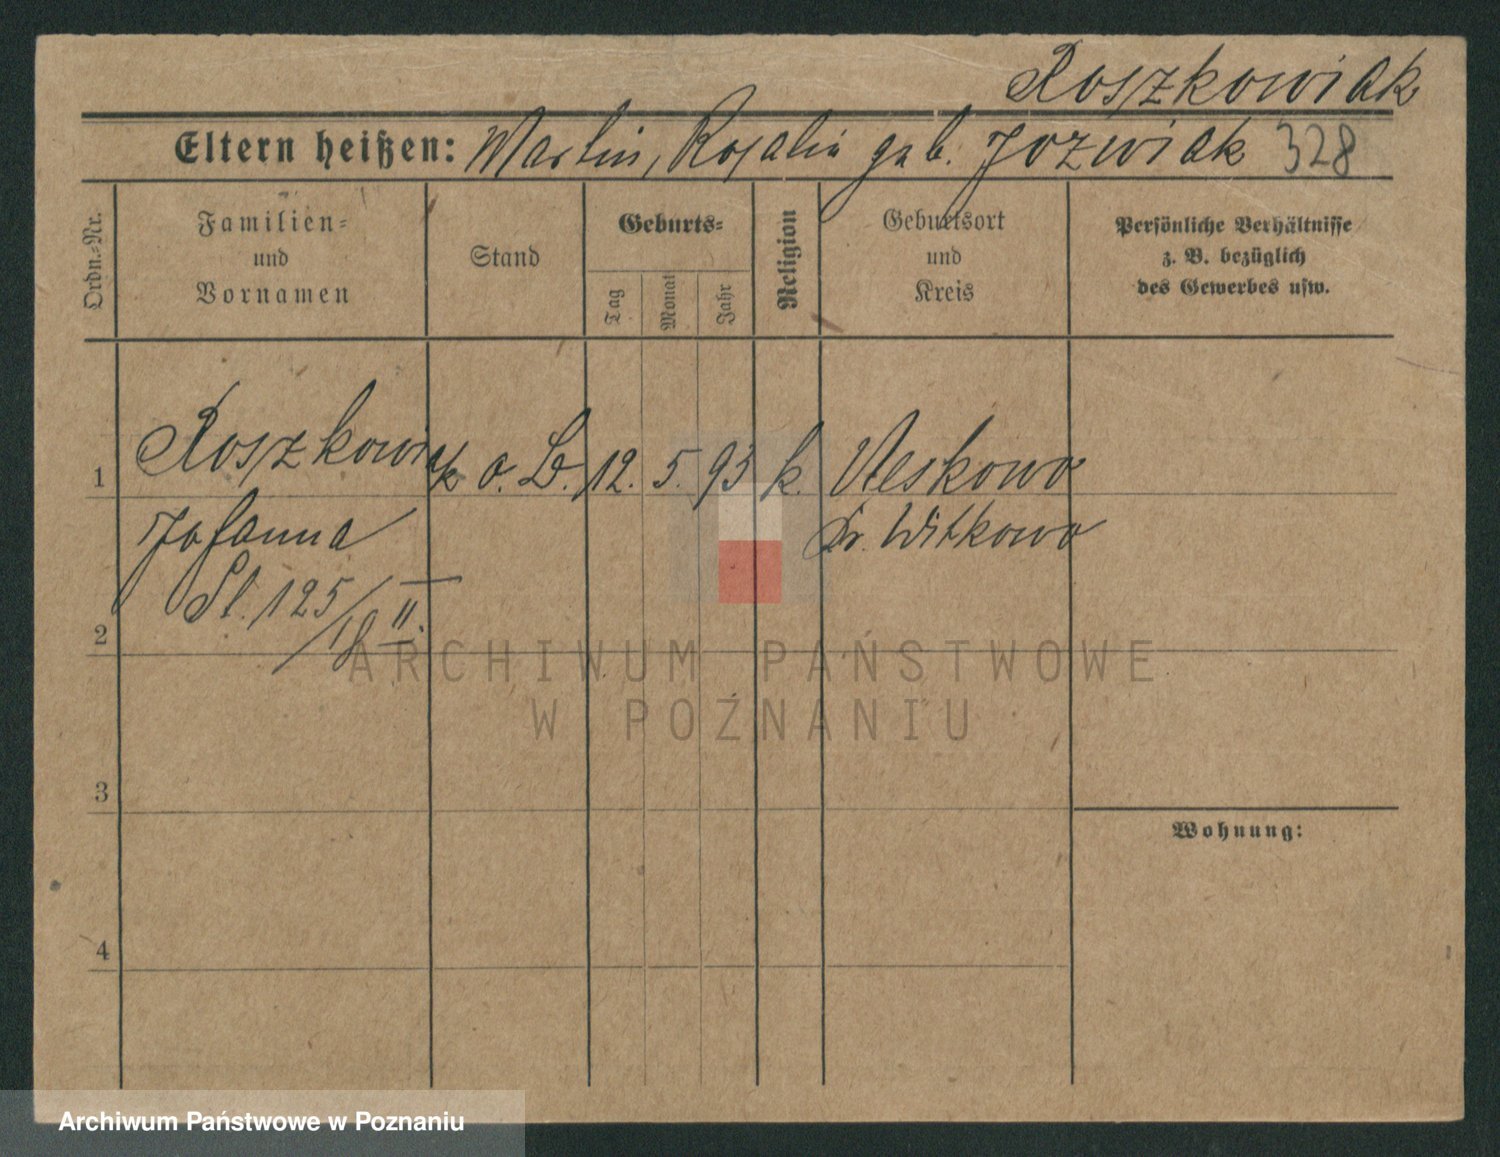 Roszkowiak
Eltern heißen: Martin, Rosalie geb. Jozwiak 328
Ordn.-Nr.
Familien-
und
Vornamen
Stand
Geburts-
Tag
Monat
Jahr
Religion
Geburtsort
und
Kreis
Persönliche Verhältnisse
z. B. bezüglich
des Gewerbes usw.
1 Roszkowiak o. B. 12. 5. 93 k.
Johanna Kr. Witkowo
St. 125/18 II.
2
3
4
Wohnung:
ARCHIWUM PAŃSTWOWE
W POZNANIU
Archiwum Państwowe w Poznaniu